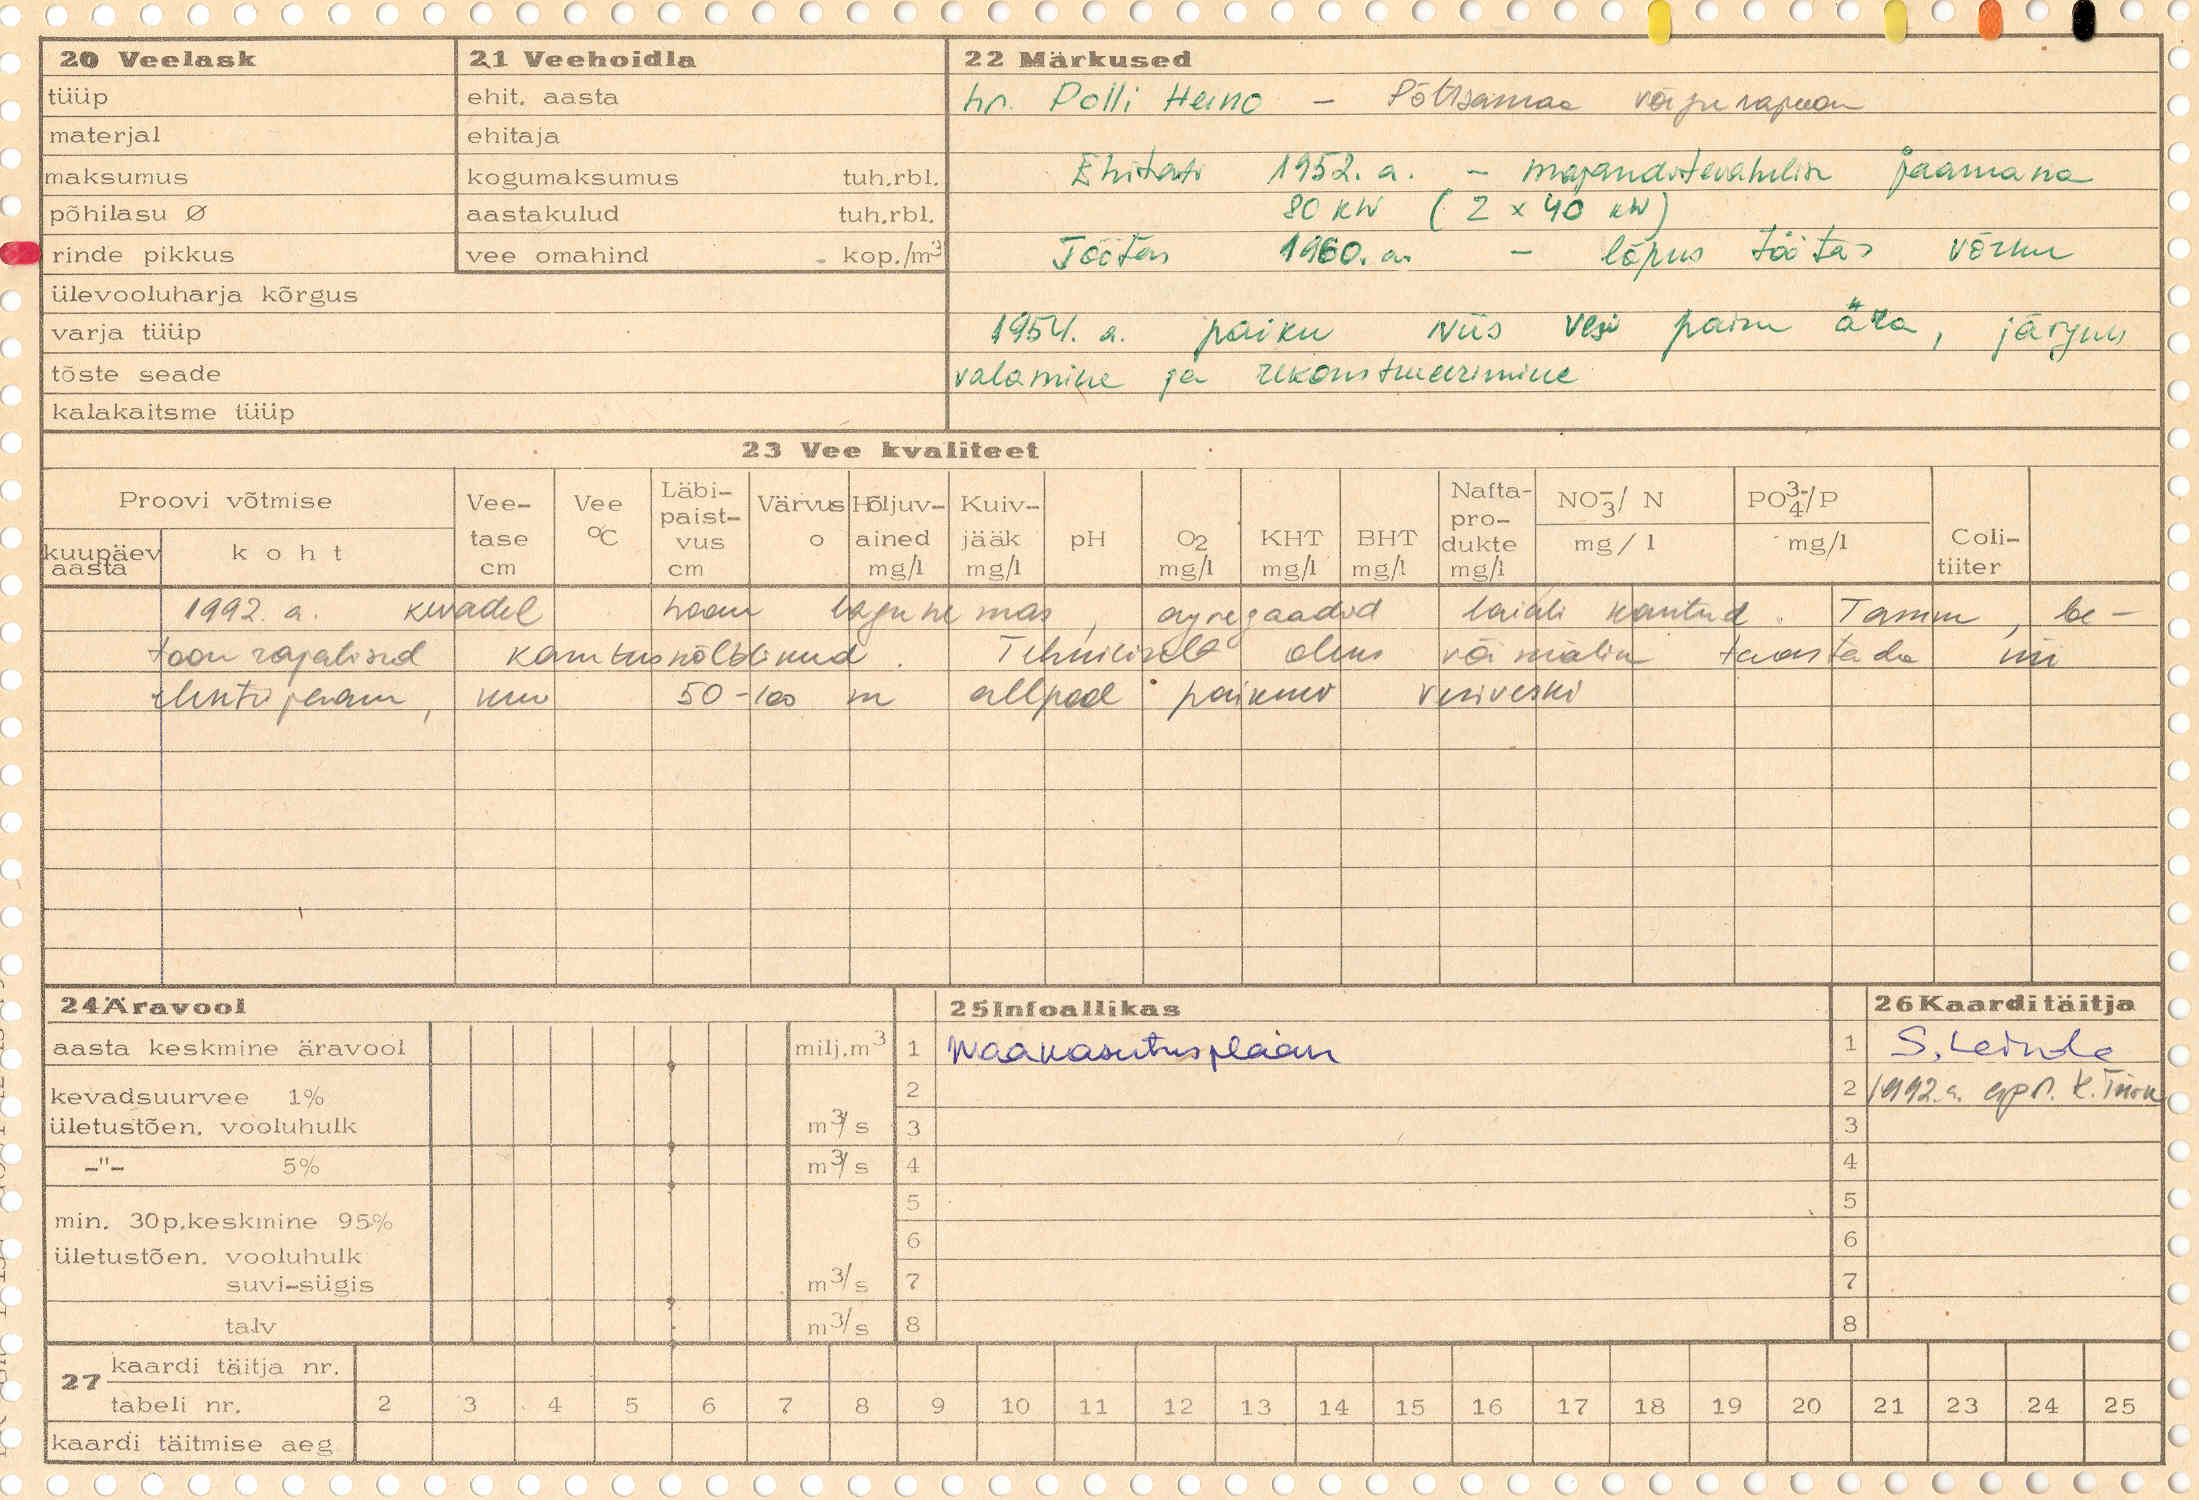 20 Veelask
tüüp
materjal
maksumus
põhilasu Ø
rinde pikkus
ülevooluharja kõrgus
varja tüüp
tõste seade
kalakaitsme tüüp
21 Veehoidla
ehit. aasta
ehitaja
kogumaksumus tuh.rbl.
aastakulud tuh.rbl.
vee omahind kop./m³
22 Märkused
hr. Polli Heino – Põltsamaa võrgurajoon
Ehitati 1952. a. – majanditevahelise jaamana
80 kW (2 x 40 kW)
Töötas 1960. a. – lõpus töötas võrku
1954. a. paiku viis vesi paisu ära, järgnes
valamine ja rekonstrueerimine
23 Vee kvaliteet
Proovi võtmise
kuupäev aasta
koht
Vee-tase cm
Vee °C
Läbi-paist-vus cm
Värvus o
Hõljuv-ained mg/l
Kuiv-jääk mg/l
pH
O2 mg/l
KHT mg/l
BHT mg/l
Nafta-pro-dukte mg/l
NO3⁻/ N mg/l
PO4³⁻/P mg/l
Coli-tiiter
1992. a. kevadel hoone lagunemas, agregaadid laiali kantud. Tamm, be-
toon rajatised kasutuskõlblikud. Tehniliselt oleks võimalik taastada nii
elektrijaam, kui 50-100 m allpool paiknev vesiveski
24 Äravool
aasta keskmine äravool milj.m³
kevadsuurvee 1%
ületustõen. vooluhulk m³/s
-"- 5% m³/s
min. 30p.keskmine 95%
ületustõen. vooluhulk
suvi-sügis m³/s
talv m³/s
25 Infoallikas
1 Maakasutusplaan
2
3
4
5
6
7
8
26 Kaardi täitja
1 S. Leinde
2 1992.a. apr. K.
3
4
5
6
7
8
27 kaardi täitja nr.
tabeli nr. 2 3 4 5 6 7 8 9 10 11 12 13 14 15 16 17 18 19 20 21 23 24 25
kaardi täitmise aeg